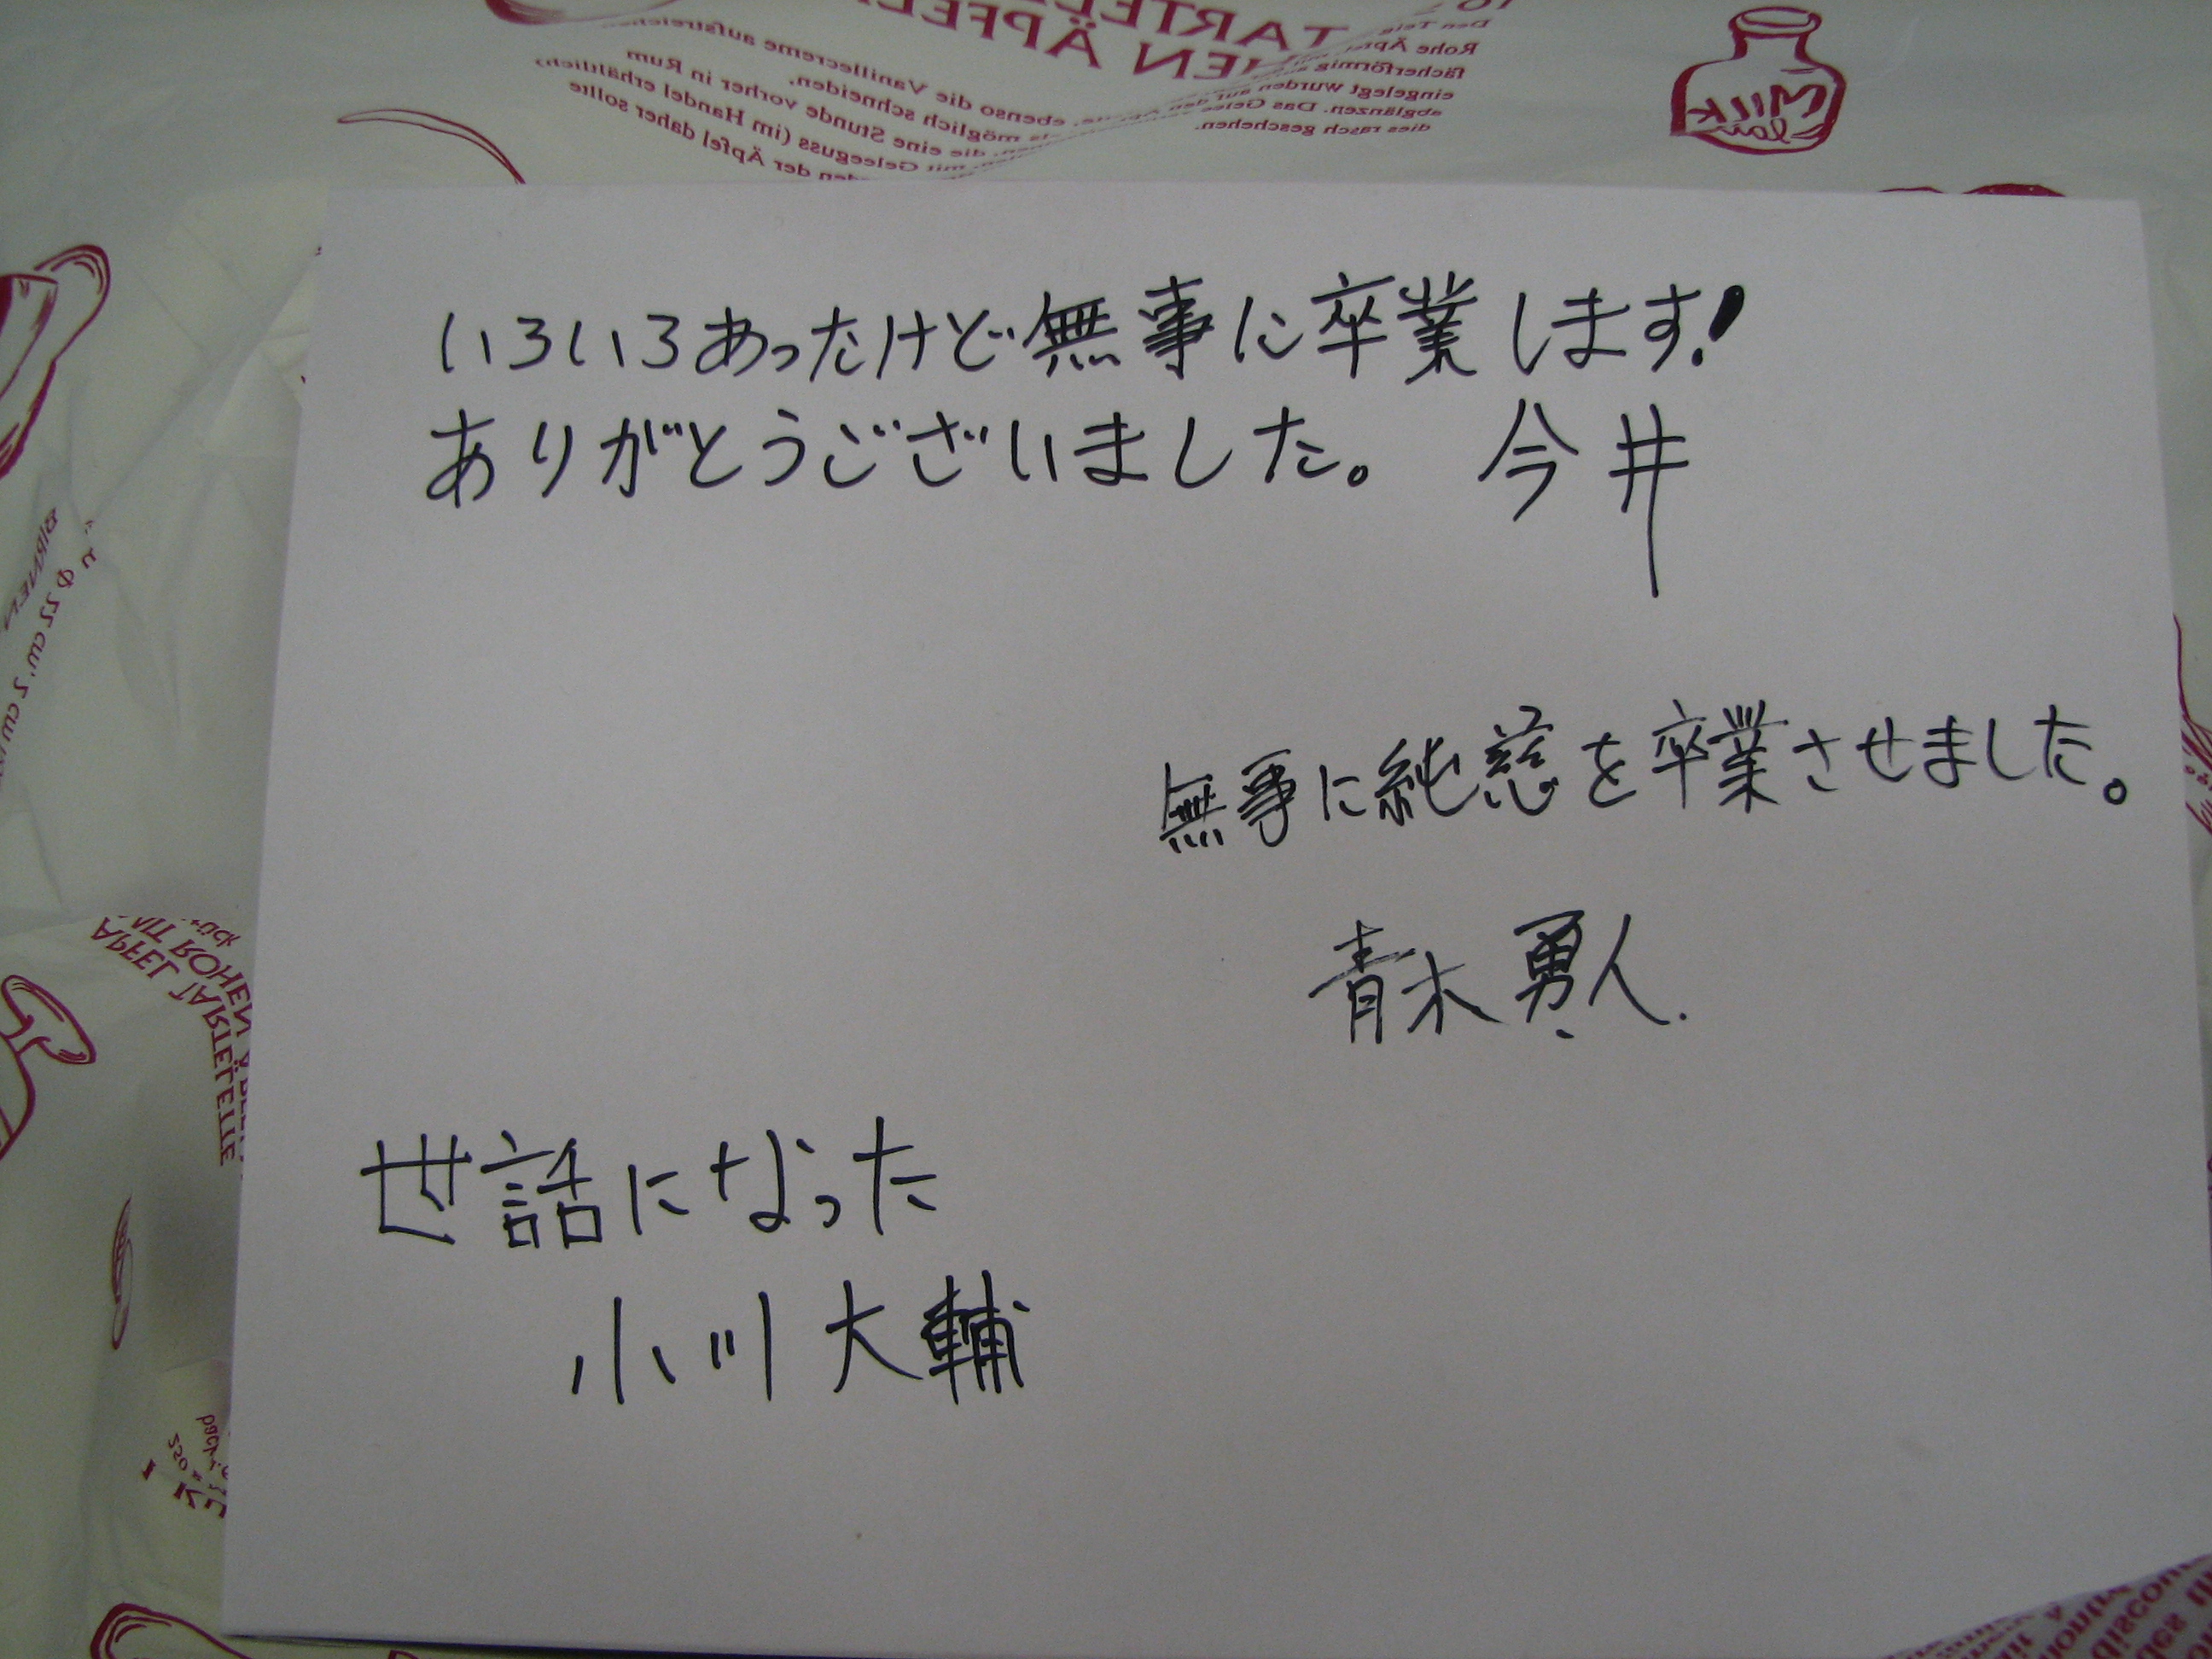 TARTEL
HEN ÄPFEL
ebenso die Vanillecreme aufstreichen
möglich schneiden,
die eine Stunde vorher in Rum
mit Geleeguss (im Handel erhältlich)
den der Äpfel daher sollte
Rohe Äpfel
fächerförmig
eingelegt wurden auf
abglänzen. Das Gelee
dies rasch geschehen.
Milk
いろいろあったけど無事に卒業します!
ありがとうございました。 今井
無事に純慈を卒業させました。
青木 勇人.
世話になった
小川 大輔
BIRNEN
Φ 22 cm, 2 cm
APFEL TARTELETTE
MIT ROHEN